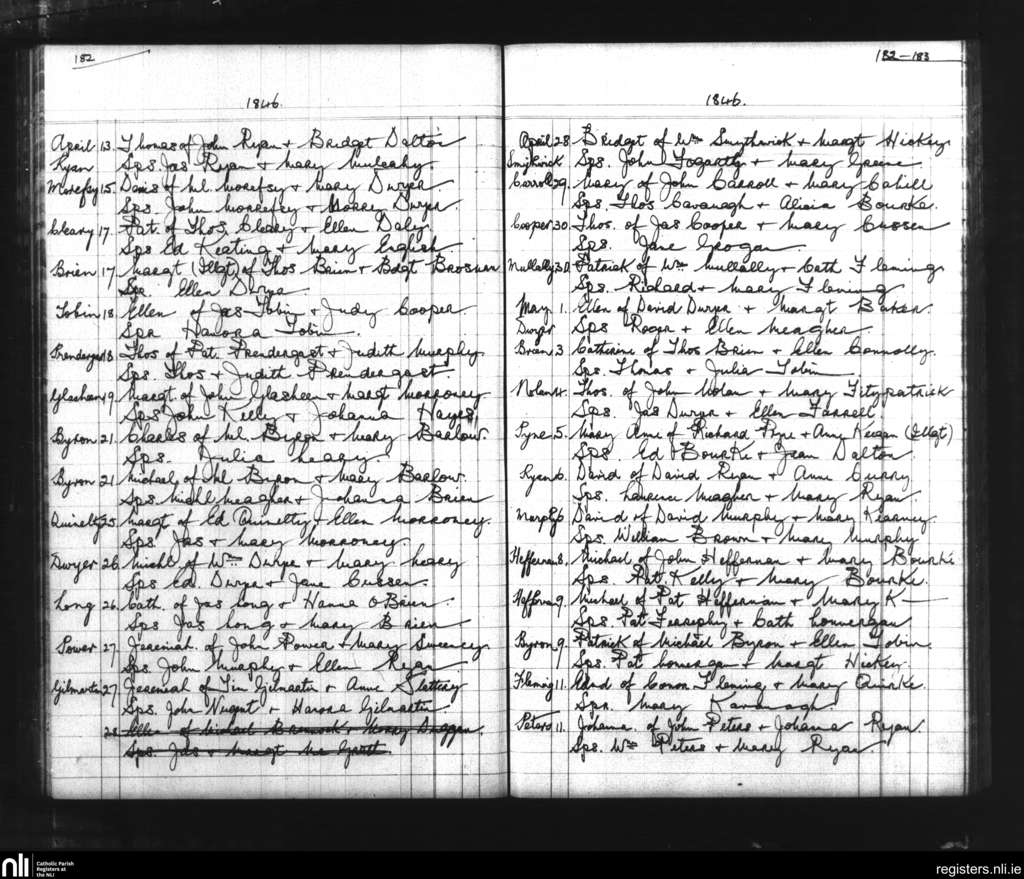 182
1846.
April 13. Thomas of John Ryan + Bridget Dalton
Ryan Sps. Jas Ryan + Mary Mulcahy
15. Denis of Ml. + Mary Dwyer
Sps. John + Dwyer
Cleary 17. Pat. of Thos. Cleary + Ellen Daly
Sps Ed Keating + Mary English
Brien 17. Margt (Illgt) of Thos Brien + Bdgt Brosnan
Ellen Dwyer
Tobin 18. Ellen of Jas Tobin + Judy Cooper.
Spr Hanora Tobin.
Prendergast 18. Thos of Pat. Prendergast + Judith Murphy.
Sps. Thos + Judith Prendergast
Glasheen 19. Margt. of John Glasheen + Margt Morroney
Sps John Kelly + Johanna Hayes
Byron 21. Charles of Ml. Byron + Mary Barlow.
Sps. Julia Leary.
Byron 21. Michael of Ml Byron + Mary Barlow.
Sps. Michl Meagher + Johanna Brien
Quinelty 25. Margt of Ed Quinelty + Ellen Morroney.
Sps. Jas + Mary Morroney.
Dwyer 26. Michl of Wm Dwyer + Mary Leary
Sps Ed. Dwyer + Jane Cussen.
Long 26. Cath. of Jas Long + Hanna O'Brien.
Sps Jas Long + Mary Brien
Power 27. Jeremiah. of John Power + Mary Sweeney.
Sps. John Murphy + Ellen Ryan
Gilmartin 27. Jeremiah of Tim Gilmartin + Anne Slattery
Sps. John Nugent + Hanora Gilmartin.
28. Ellen of Michael + Duggan
Sps. Jas + Margt Mc Grath
182-183
1846.
April 28. Bridget of Wm Smythwick + Margt Hickey.
Smythwick Sps. John Fogarty + Mary Greene
Carroll 29. Mary of John Carroll + Mary Cahill
Sps. Thos Cavanagh + Alicia Bourke.
Cooper 30. Thos. of Jas Cooper + Mary Cussen
Sps. Jane Grogan.
Mullally 30. Patrick of Wm Mullally + Cath Fleming
Sps. Richard + Mary Fleming
May 1. Ellen of David Dwyer + Margt Baker.
Dwyer Sps Roger + Ellen Meagher.
Brien 3. Catherine of Thos Brien + Ellen Connolly.
Sps. Thomas + Julia Tobin
Nolan 4. Thos. of John Nolan + Mary Fitzpatrick
Sps. Jas Dwyer + Ellen Farrell
Pyne 5. Mary Anne of Richard Pyne + Anne Keegan (Illgt)
Sps. Ed Bourke + Jean Dalton.
Ryan 6. David of David Ryan + Anne Curry
Sps. Laurence Meagher + Mary Ryan.
Murphy 6. David of David Murphy + Mary Kearney.
Sps. William Brown + Mary Murphy
Heffernan 8. Michael of John Heffernan + Mary Bourke
Sps. Pat. Kelly + Mary Bourke.
Heffernan 9. Michael of Pat Heffernan + Mary K—
Sps. Pat + Cath Lonnergan.
Byron 9. Patrick of Michael Byron + Ellen Tobin.
Sps. Pat Lonnergan + Margt Hickey.
Fleming 11. Edmd of Conor Fleming + Mary Quirke.
Spr. Mary Kavanagh
Peters 11. Johanna. of John Peters + Johanna Ryan.
Sps. Wm Peters + Mary Ryan
nli Catholic Parish
Registers at
the NLI
registers.nli.ie